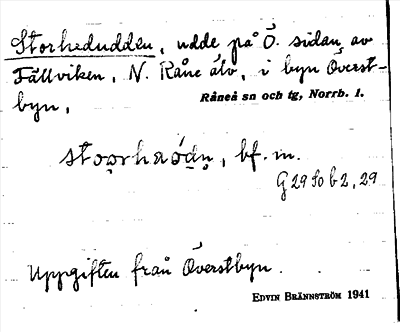 Storhedudden, udde på Ö. sidan av
Fällviken, N. Råne älv, i byn Överst-
byn,
Råneå sn och tg, Norrb. l.
bf. m.
G 29 So b 2, 29
Uppgiften från Överstbyn.
EDVIN BRÄNNSTRÖM 1941